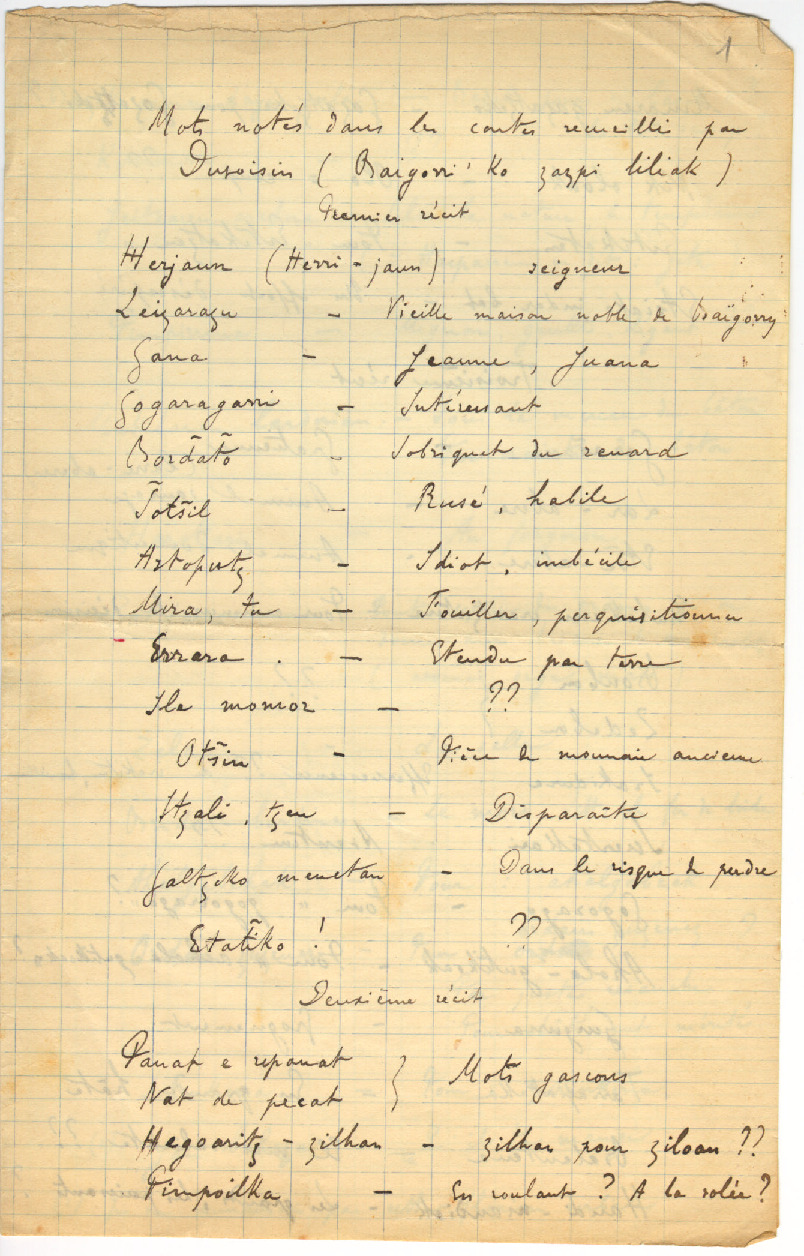 1
Mots notés dans les contes recueillis par
Duvoisin (Baigorri'ko zazpi liliak)
Premier récit
Herjaun (Herri-jaun) seigneur
Leizarazu - Vieille maison noble de Baïgorry
Gana - Jeanne, Juana
Gogaragarri - Intéressant
Bord̃at̃o - Sobriquet du renard
T̃ots̃il - Rusé, habile
Artoputz - Idiot, imbécile
Mira, tu - Fouiller, perquisitionner
Errara . - Etendu par terre
Ile momor - ??
Ots̃in - Pièce de monnaie ancienne
Itzali, tzen - Disparaître
Galtzeko menetan - Dans le risque de perdre
Etat̃iko ! ??
Deuxième récit
Panat e reponat
Nat de pecat } Mots gascons
Hegoaritz-zilhan - zilhan pour ziloan ??
Pimpoilka - En roulant ? A la volée ?